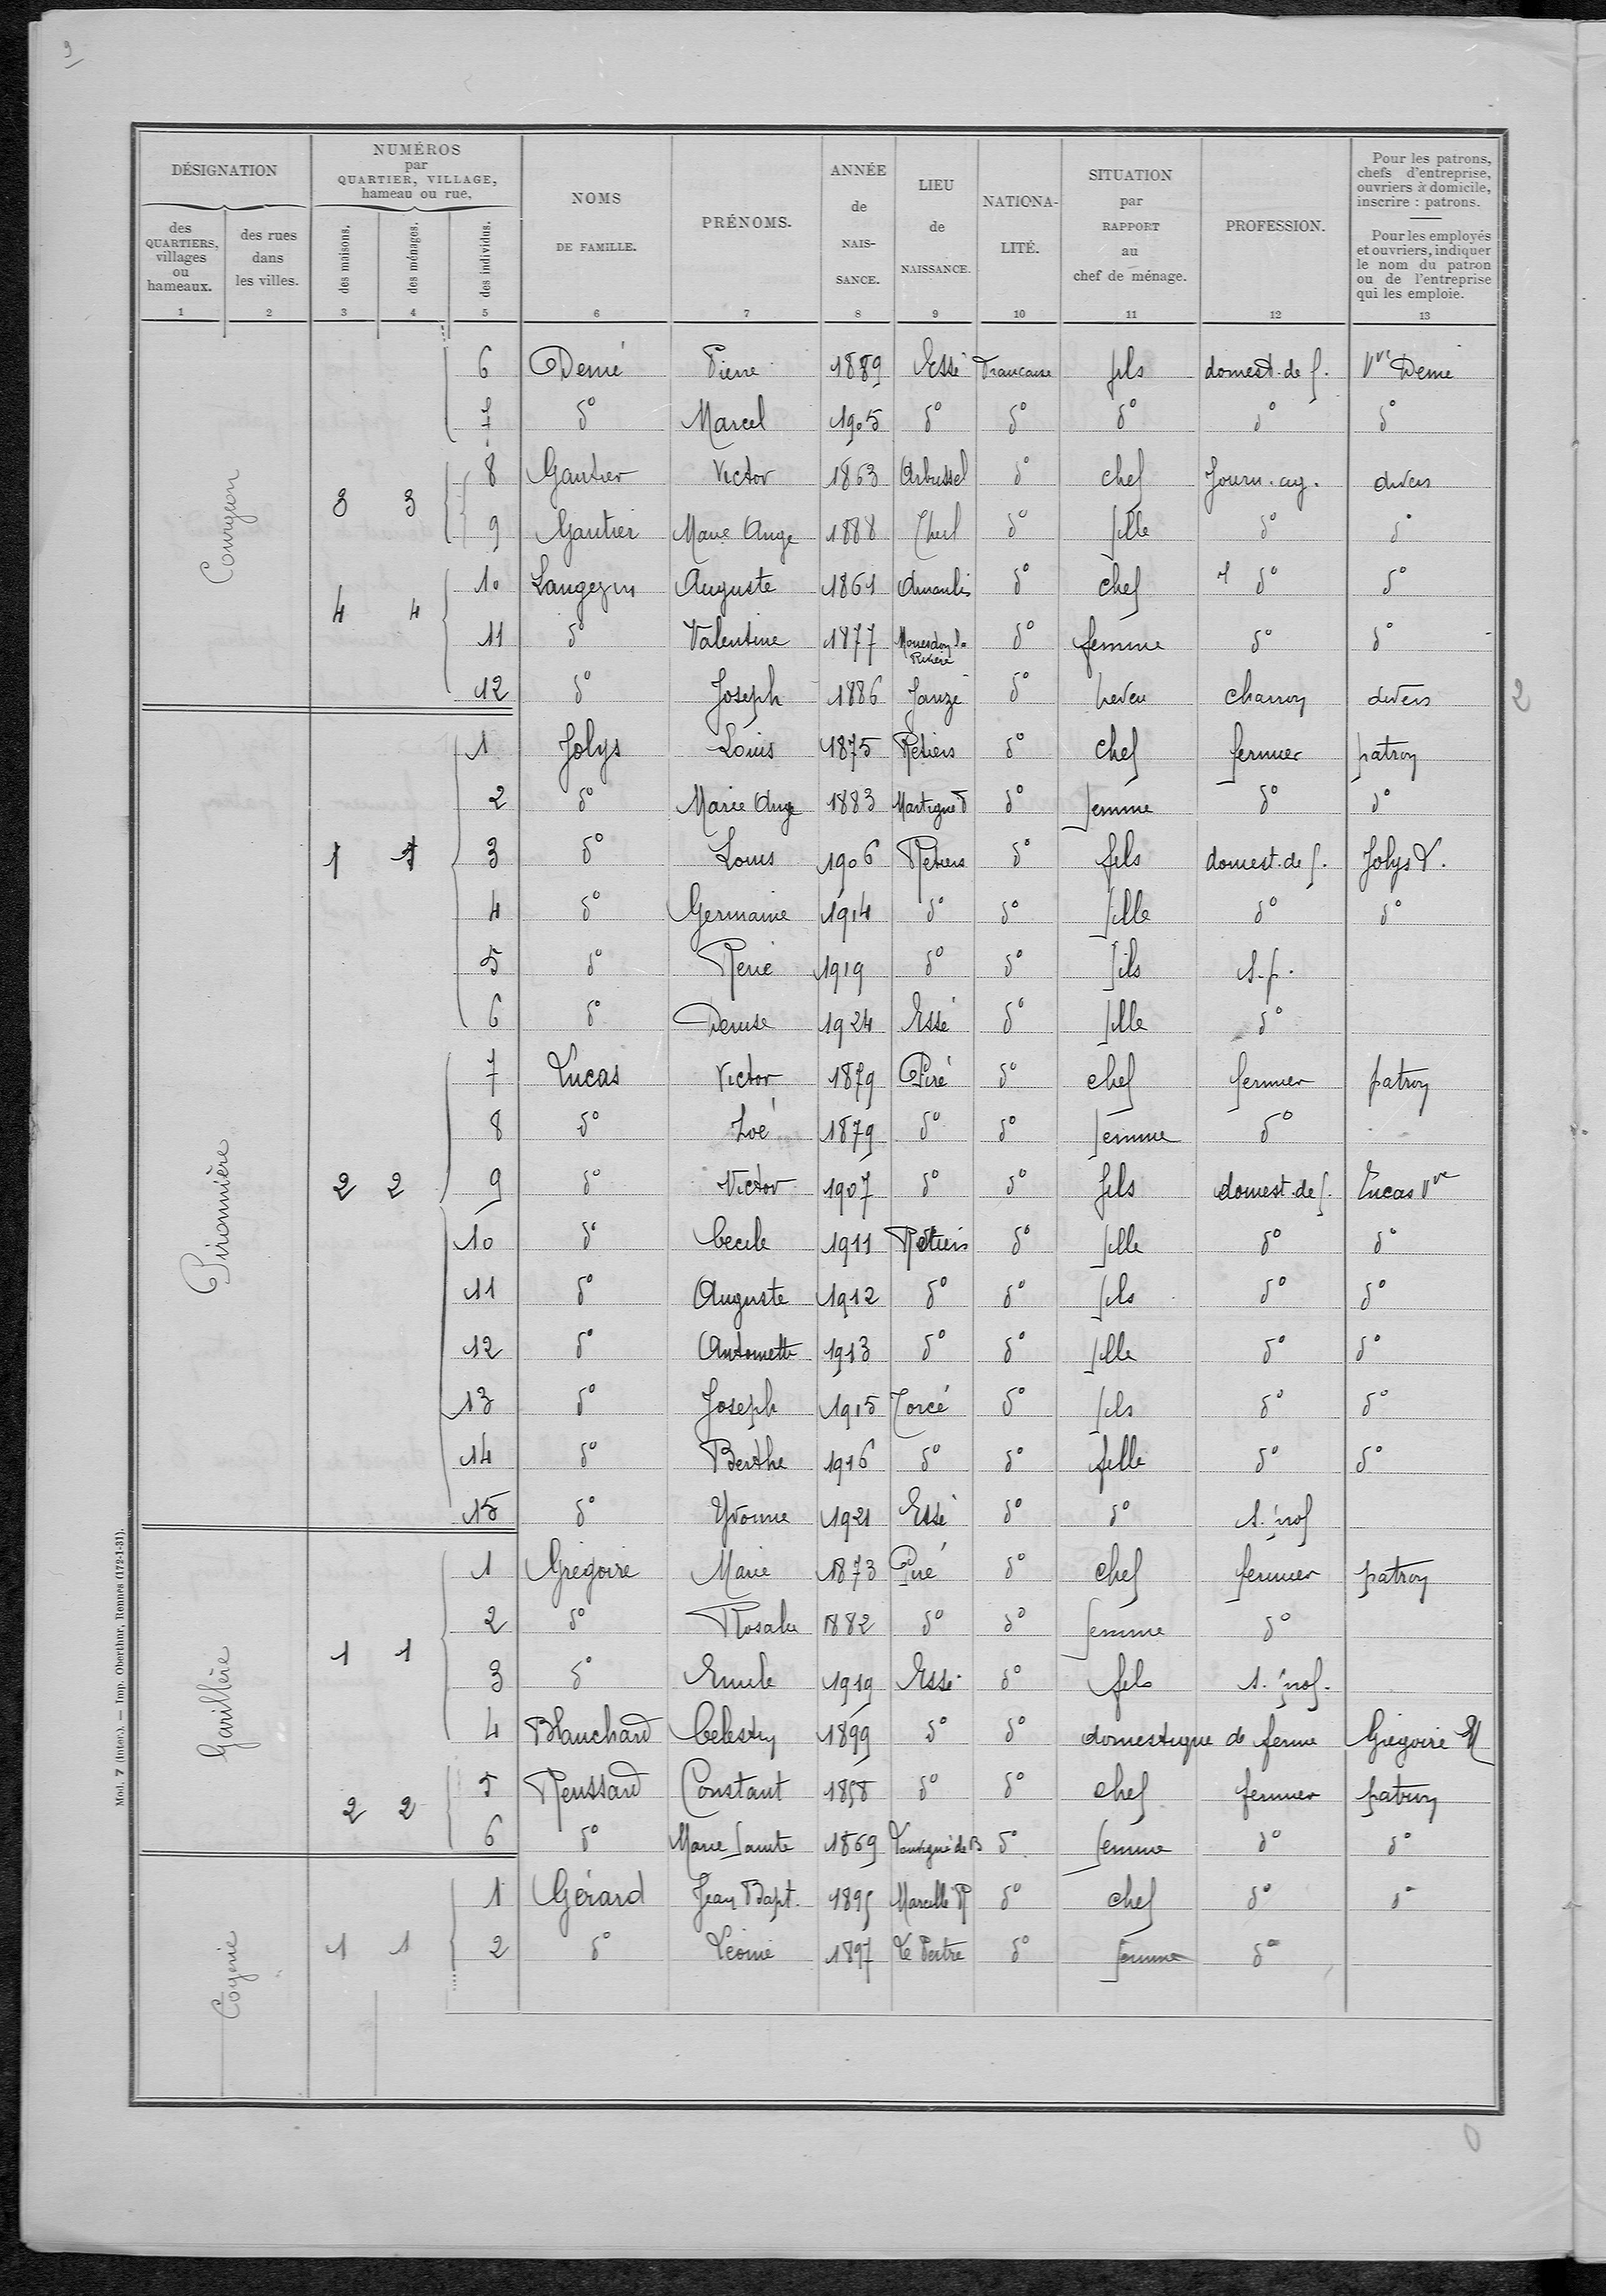 9
DÉSIGNATION
NUMÉROS
par
QUARTIER, VILLAGE,
hameau ou rue,
des
QUARTIERS,
villages
ou
hameaux.
des rues
dans
les villes.
des maisons.
des ménages.
des individus.
NOMS
DE FAMILLE.
PRÉNOMS.
ANNÉE
de
NAIS-
SANCE.
LIEU
de
NAISSANCE.
NATIONA-
LITÉ.
SITUATION
par
RAPPORT
au
chef de ménage.
PROFESSION.
Pour les patrons,
chefs d'entreprise,
ouvriers à domicile,
inscrire : patrons.
Pour les employés
et ouvriers, indiquer
le nom du patron
ou de l'entreprise
qui les emploie.
1 2 3 4 5 6 7 8 9 10 11 12 13
Courgeon
6 Demé Pierre 1889 Essé Francaise fils domest. de f. Vve Demé
7 d° Marcel 1905 d° d° d° d° d°
3 3
8 Gautier Victor 1863 Arbrissel d° chef Journ. ag. divers
9 Gautier Marie Ange 1888 Theil d° fille d° d°
4 4
10 Langezin Auguste 1861 Amanlis d° chef d° d°
11 d° Valentine 1877 d° femme d° d°
12 d° Joseph 1886 Janzé d° neveu charron divers
2
Pironnière
1 1
1 Jolys Louis 1875 Retiers d° chef fermier patron
2 d° Marie Ange 1883 Martigné d° femme d° d°
3 d° Louis 1906 Retiers d° fils domest. de f. Jolys L.
4 d° Germaine 1914 d° d° fille d° d°
5 d° René 1919 d° d° fils s.p.
6 d° Denise 1924 Essé d° fille d°
2 2
7 Lucas Victor 1879 Piré d° chef fermier patron
8 d° Zoé 1879 d° d° femme d°
9 d° Victor 1907 d° d° fils domest. de f. Lucas Vve
10 d° Cecile 1911 Retiers d° fille d° d°
11 d° Auguste 1912 d° d° fils d° d°
12 d° Antoinette 1913 d° d° fille d° d°
13 d° Joseph 1915 Torcé d° fils d° d°
14 d° Berthe 1916 d° d° fille d° d°
15 d° Yvonne 1921 Essé d° d° s. prof
Garillère
1 1
1 Grégoire Marie 1873 Piré d° chef fermier patron
2 d° Rosalie 1882 d° d° femme d°
3 d° Emile 1919 Essé d° fils s. prof.
4 Blanchard Celestin 1899 d° d° domestique de ferme Grégoire M
2 2
5 Reussard Constant 1858 d° d° chef fermier patron
6 d° Marie Sainte 1869 d° femme d° d°
Cogerie
1 1
1 Gérard Jean Bapt. 1895 Marcillé R d° chef d° d°
2 d° Léonie 1897 Le Pertre d° femme d°
Mod. 7 (Inter.). — Imp. Oberthur, Rennes (172-1-31).
0